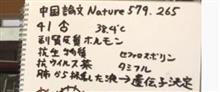 中国論文 Nature 579.265
41才 38.4℃
副腎皮質ホルモン
抗生物質 セファロスポリン
抗ウイルス薬 タミフル
肺から採取した液→遺伝子決定